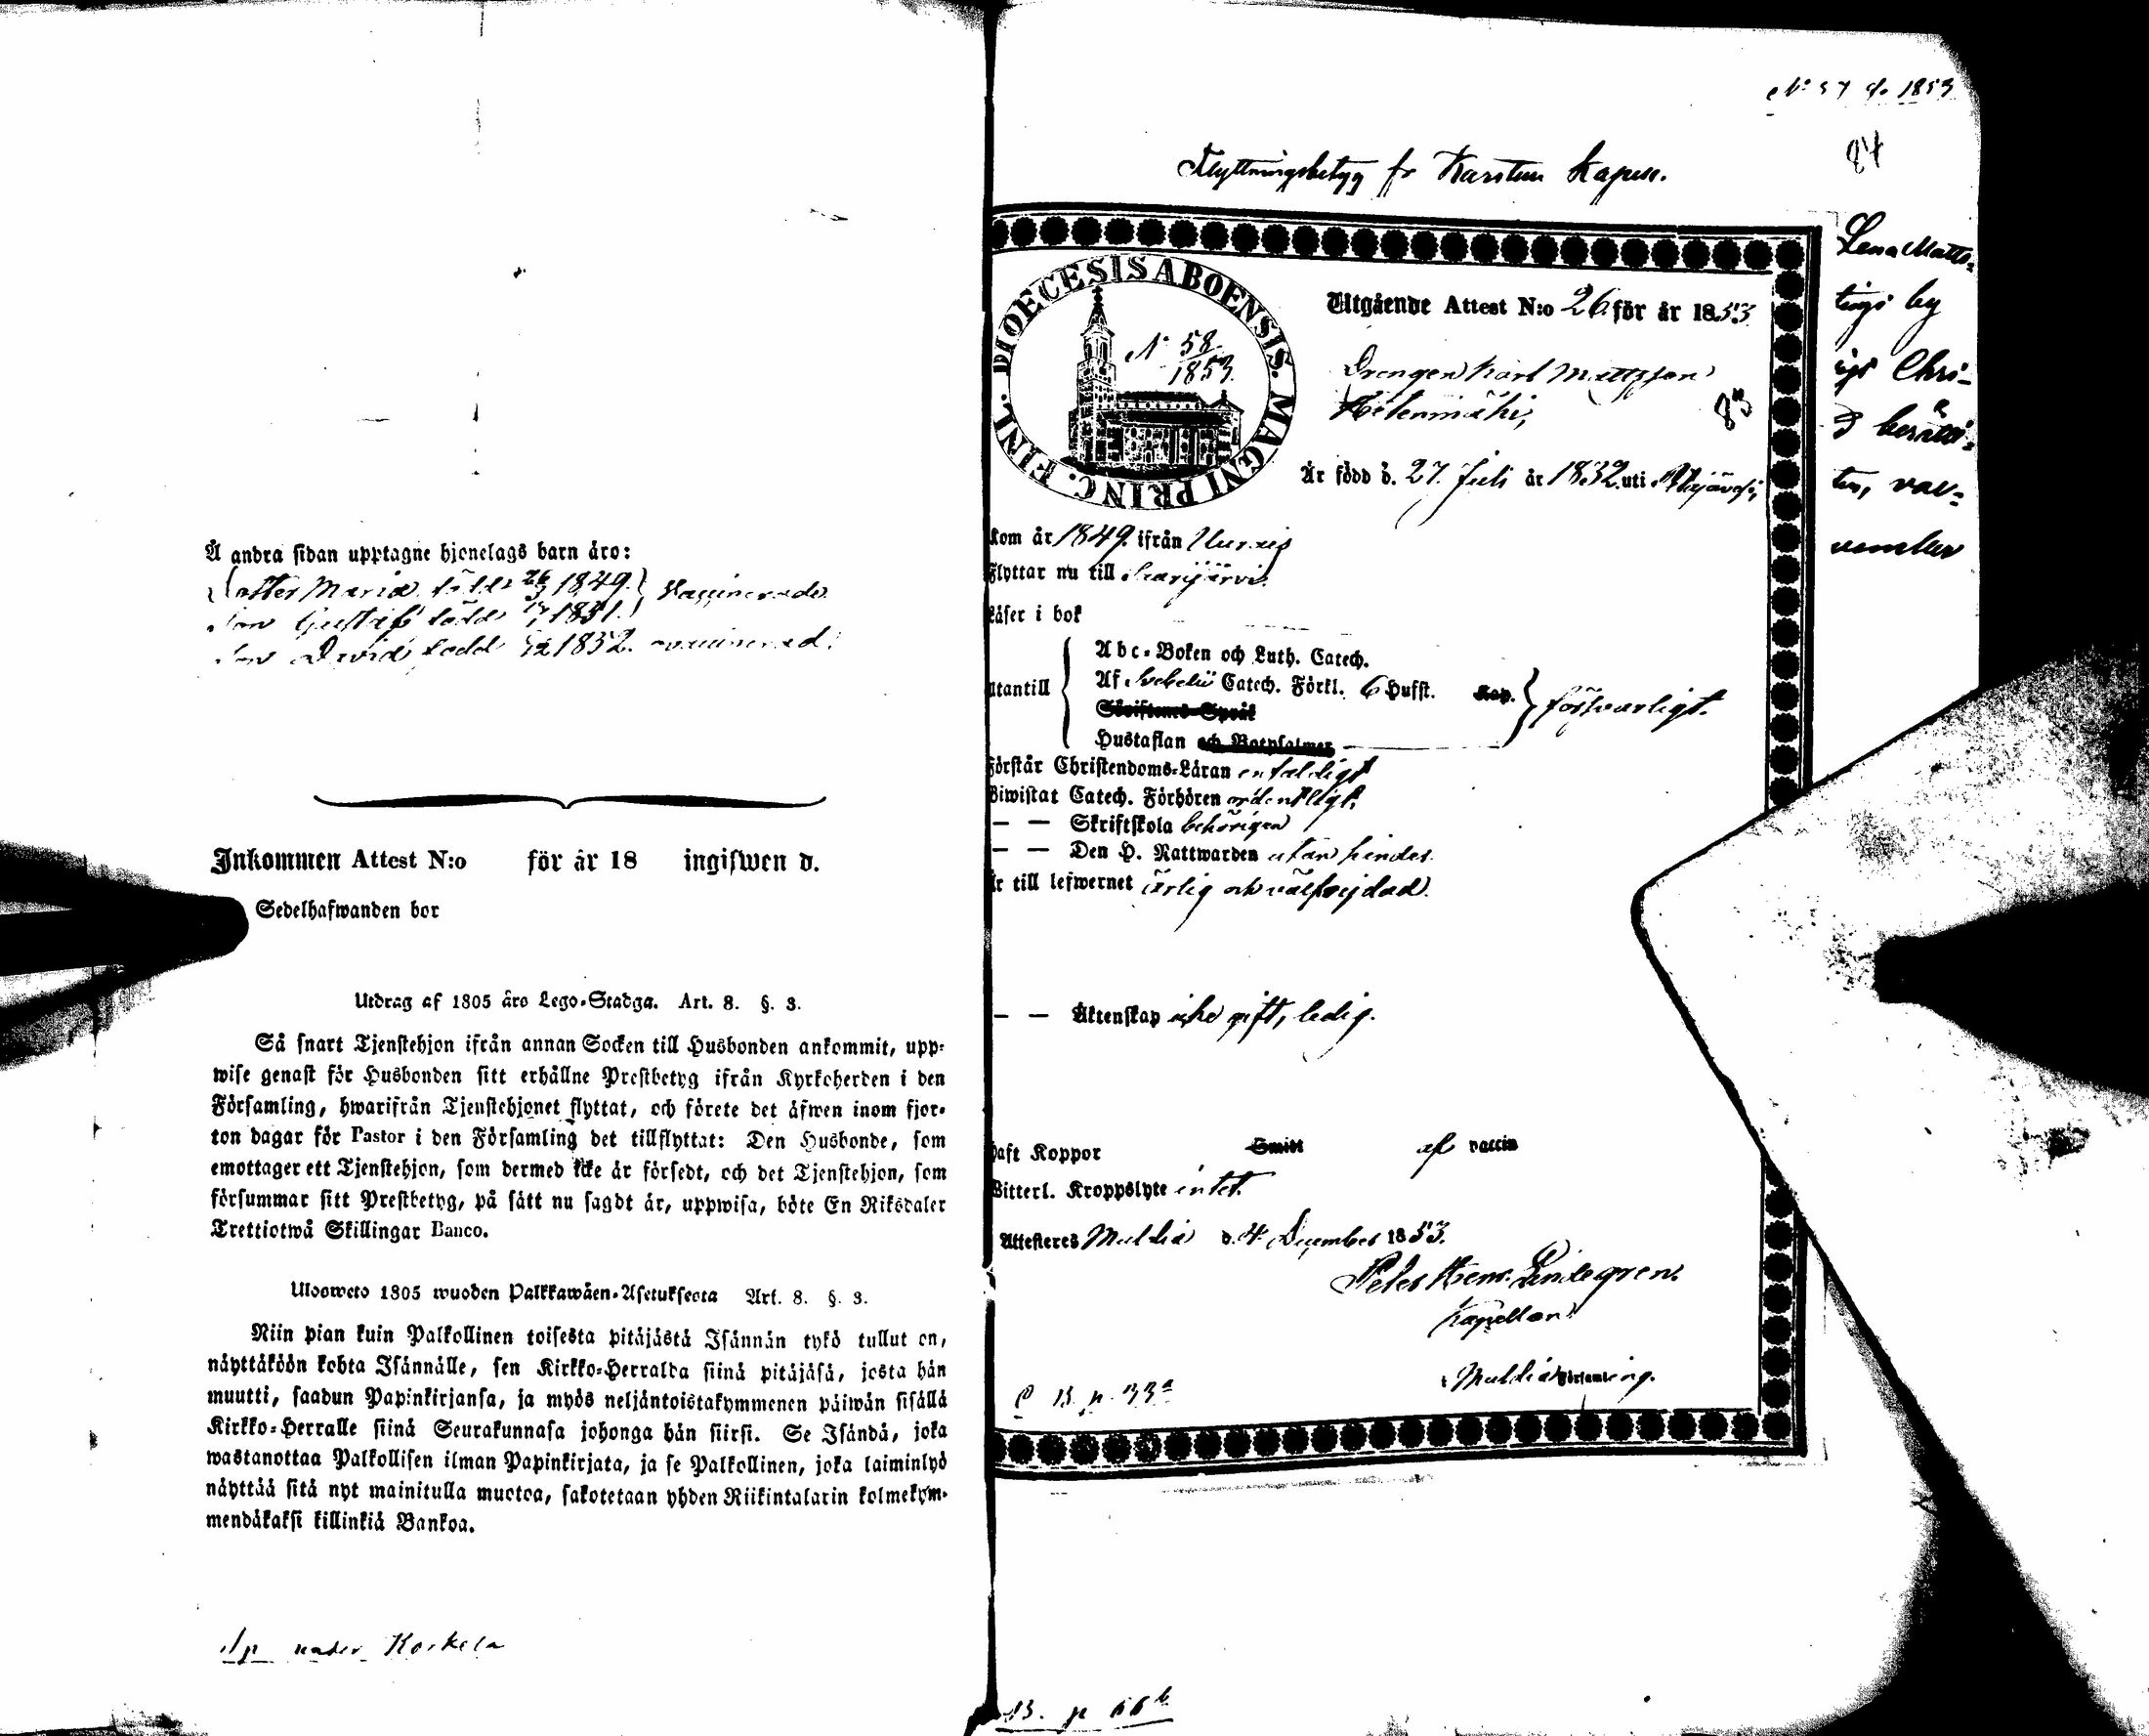 Å andra sidan upptagne hjonelags barn äro:
dotter Maria född 26/3 1849. } Vaccinerade
Son Gustaf född 1851.
Son David född 1852. ovaccinerad.
Inkommen Attest N:o för år 18 ingifwen d.
Sedelhafwanden bor
Utdrag af 1805 års Lego-Stadga. Art. 8. §. 3.
Så snart Tjenstehjon ifrån annan Socken till Husbonden ankommit, upp-
wise genast för Husbonden sitt erhållne Prestbetyg ifrån Kyrkoherden i den
Församling, hwarifrån Tjenstehjonet flyttat, och förete det äfwen inom fjor-
ton dagar för Pastor i den Församling det tillflyttat: Den Husbonde, som
emottager ett Tjenstehjon, som dermed icke är försedt, och det Tjenstehjon, som
försummar sitt Prestbetyg, på sätt nu sagdt är, uppwisa, böte En Riksdaler
Trettiotwå Skillingar Banco.
Ulosweto 1805 wuoden Palkkawäen-Asetuksesta Art. 8. §. 3.
Niin pian kuin Palkollinen toisesta pitäjästä Isännän tykö tullut on,
näyttäköön kohta Isännälle, sen Kirkko-Herralda siinä pitäjäsä, josta hän
muutti, saadun Papinkirjansa, ja myös neljäntoistakymmenen päiwän sisällä
Kirkko-Herralle siinä Seurakunnasa johonga hän siirsi. Se Isändä, joka
wastanottaa Palkollisen ilman Papinkirjata, ja se Palkollinen, joka laiminlyö
näyttää sitä nyt mainitulla muotoa, sakotetaan yhden Riikintalarin kolmekym-
mendäkaksi killinkiä Bankoa.
Sp under Koskela
No 57 d. 1853
84
Flyttningsbetyg fr Karstun Kapell.
DIOECESIS ABOENSIS. MAGNI PRINC. FINL.
N 58
1853.
Utgående Attest N:o 26 för år 1853
Drengen Karl Mattsson
83
Är född d. 27. Juli år 1832 uti
Kom år 1849. ifrån
Flyttar nu till Saarijärvi.
Läser i bok
Abc-Boken och Luth. Catech.
Utantill Af Svebelii Catech. Förkl. 6 Hufst. Kap. } försvarligt.
Skriftenes Språk
Hustaflan och Botpsalmer
Förstår Christendoms-Läran enfaldigt
Biwistat Catech. Förhören ordentligt.
— — Skriftskola behörigen
— — Den H. Nattwarden utan hinder.
Är till lefwernet ärlig och välfrejdad.
— — Äktenskap icke gift, ledig.
Haft Koppor Smitt af vaccin
Witterl. Kroppslyte intet.
Attesteres Multia d. 4. December 1853.
Peter Henr. Lindegren.
Kapellan
i Multia Församling.
C B. p. 33a
B. p 66 b
Lena Matts-
tings by
igt Chri-
venster